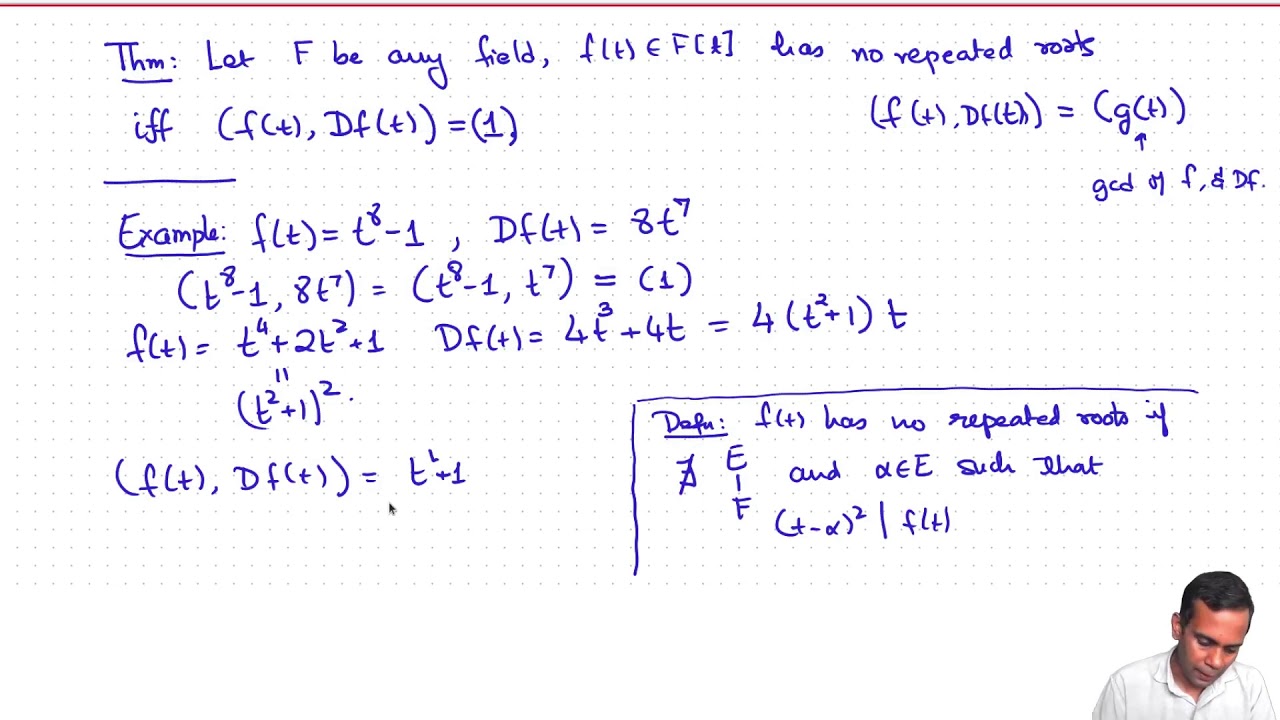 Thm: Let F be any field, f(t) ∈ F[t] has no repeated roots
iff (f(t), Df(t)) = (1)
(f(t), Df(t)) = (g(t))
↑
gcd of f, & Df.
Example: f(t) = t⁸-1 , Df(t) = 8t⁷
(t⁸-1, 8t⁷) = (t⁸-1, t⁷) = (1)
f(t) = t⁴+2t²+1 Df(t) = 4t³+4t = 4(t²+1) t
||
(t²+1)².
(f(t), Df(t)) = t²+1
Defn: f(t) has no repeated roots if
∄ E and α∈E such that
|
F
(t-α)² | f(t)